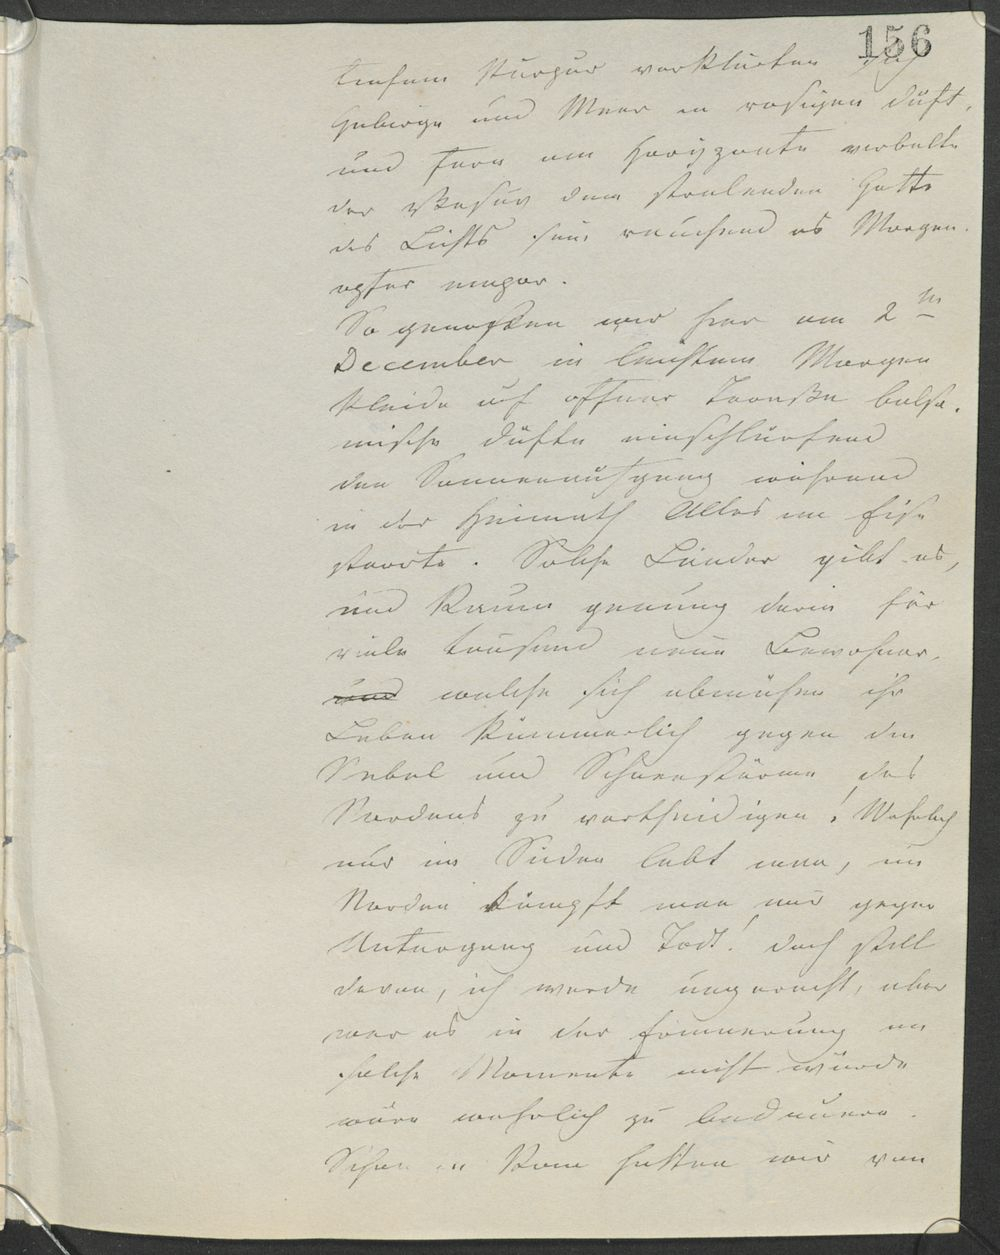 156
tiefem Purpur verklärten sich
Gebirge und Meer in rosigem Duft,
und fern am Horizonte wirbelte
der Vesuv dem stralenden Gotte
des Lichts sein rauchend es Morgen-
opfer empor.
So genossen wir hier am 2ten
December in leichtem Morgen
kleide auf offner Terraße balsa-
mische Düfte einschlürfend
den Sonnenaufgang während
in der Heimath Alles im Eise
starrte. Solche Länder gibt es,
und Raum genung darin für
viele tausend neue Bewohner,
und welche sich abmühen ihr
Leben kümmerlich gegen die
Nebel und Schneestürme des
Nordens zu vertheidigen! Wahrlich
nur im Süden lebt man, im
Norden kämpft man nur gegen
Untergang und Tod! doch still
davon, ich werde ungerecht, aber
wer es in der Erinnerung an
solche Momente nicht würde
wäre wahrlich zu bedauern.
Schon in Rom hatten wir von